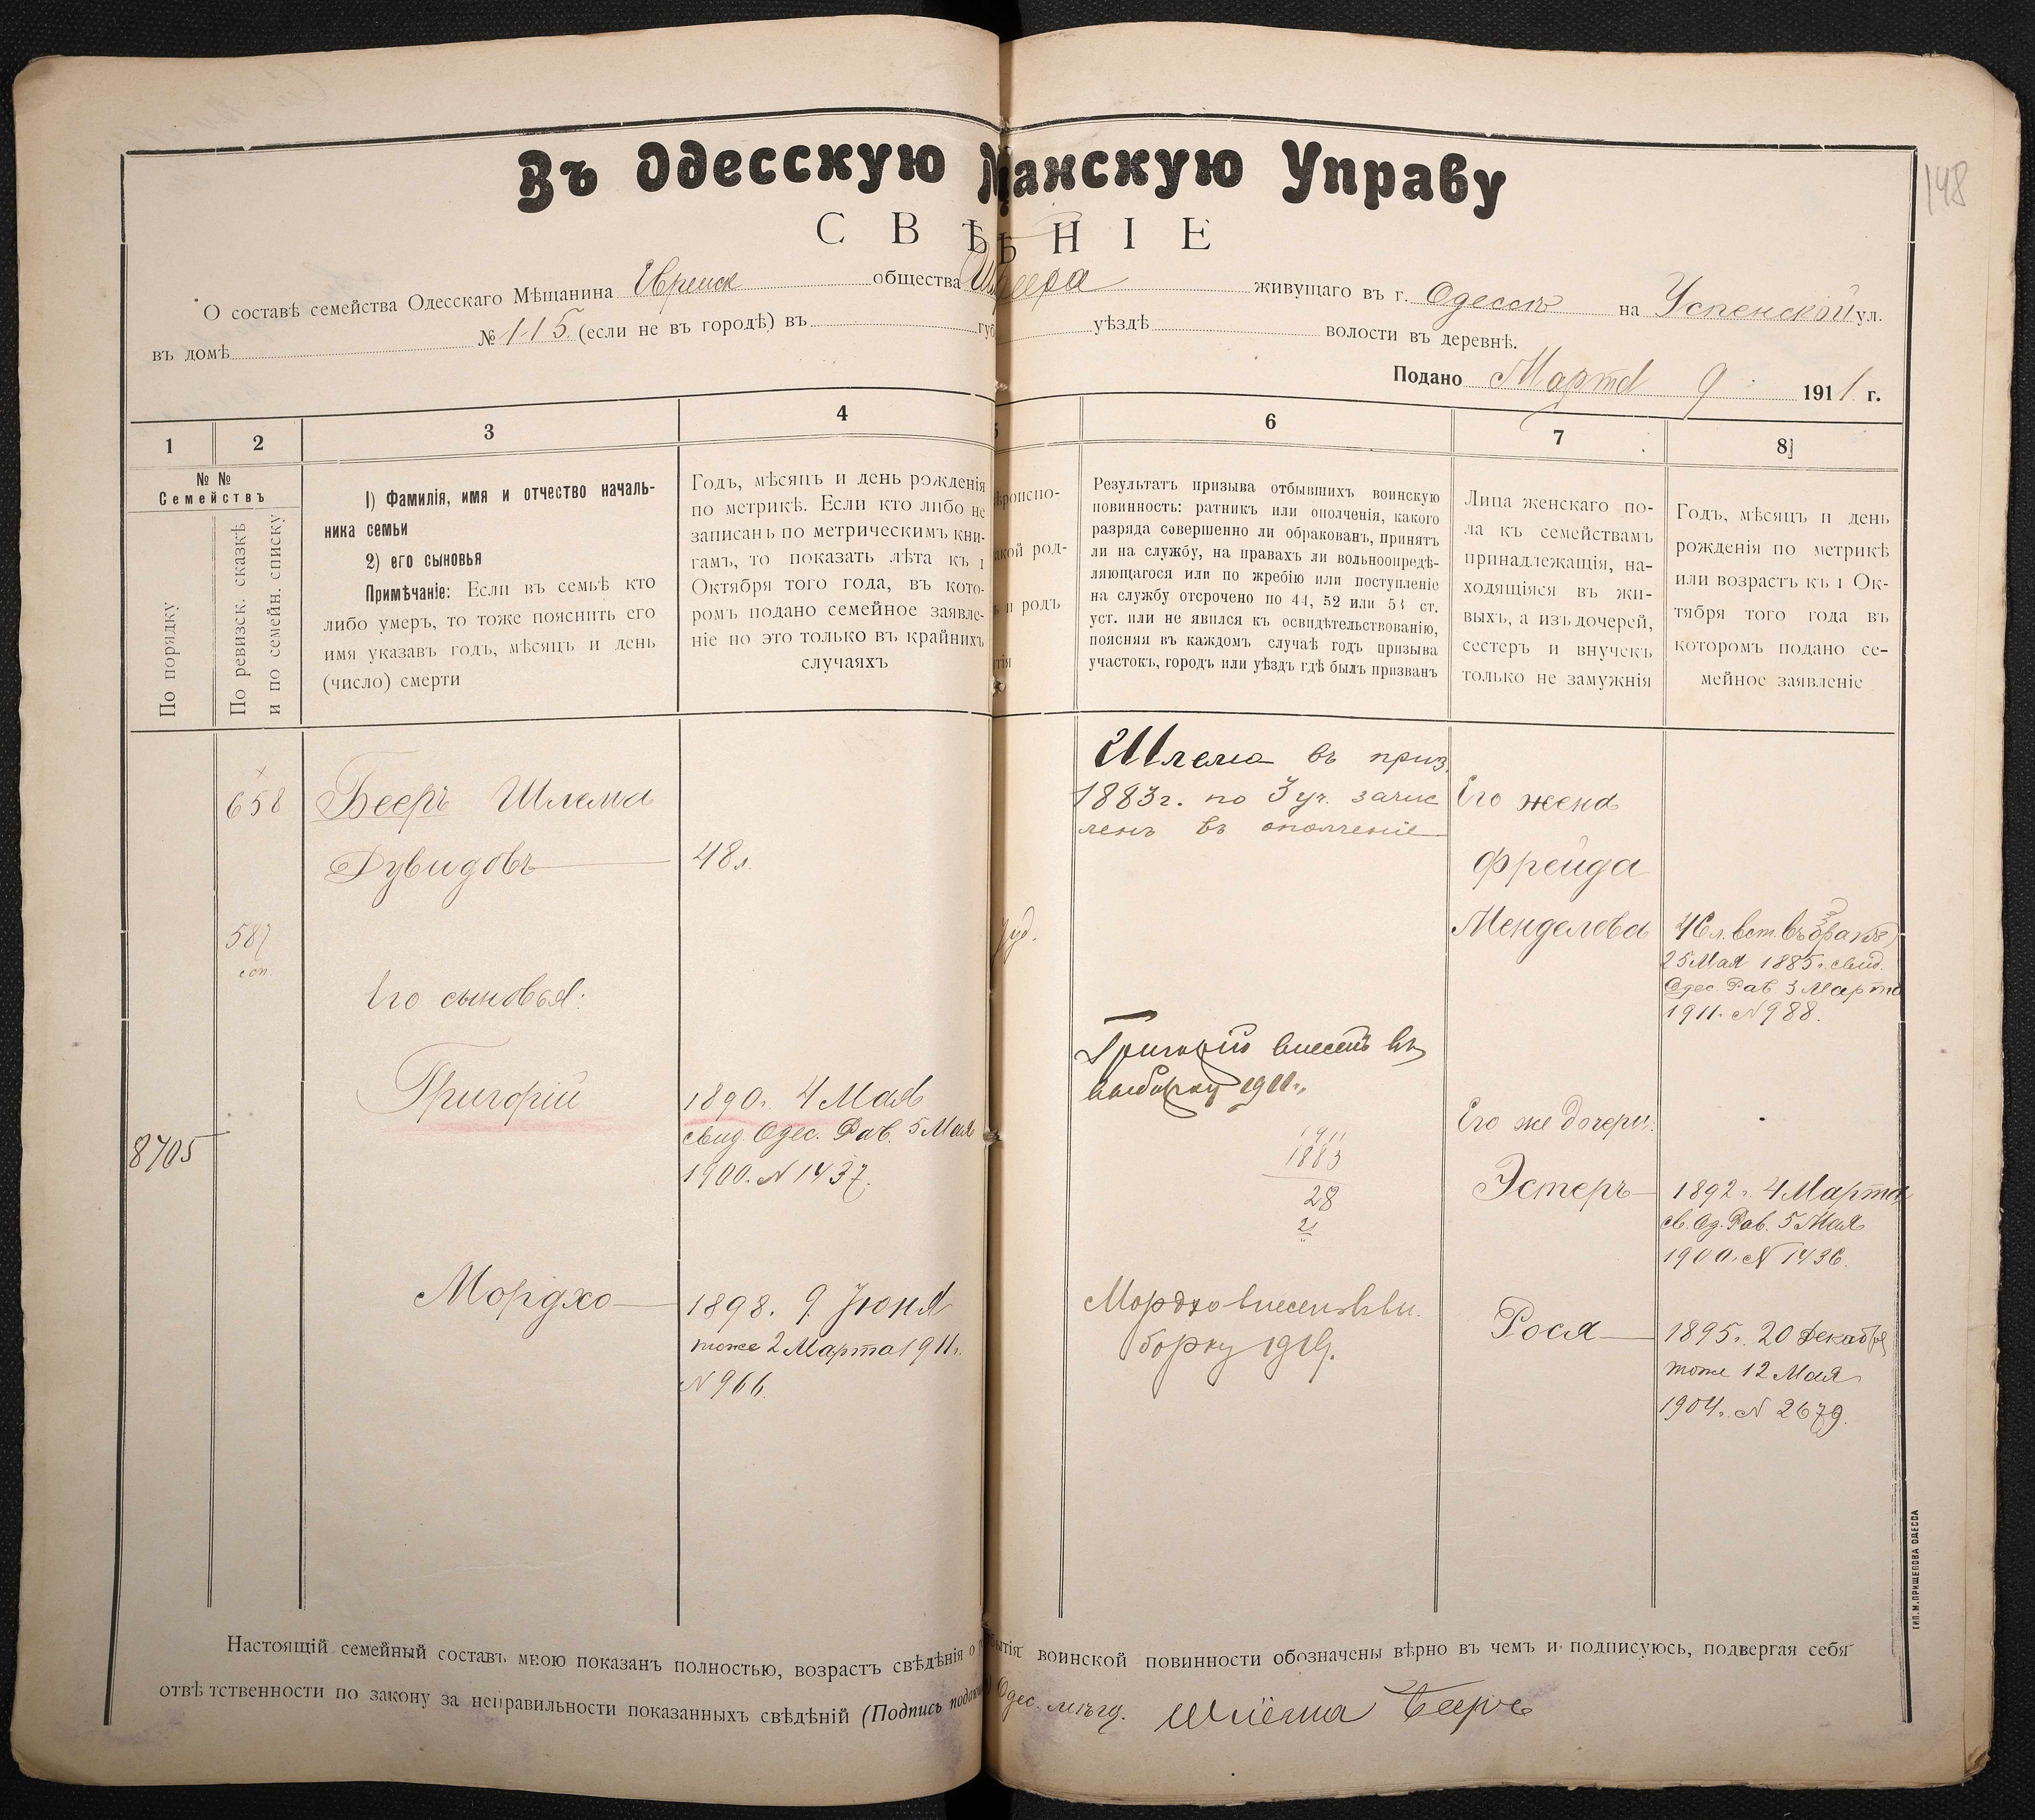 148
Въ Одесскую М анскую Управу
СВѢ НІЕ
О составѣ семейства Одесскаго Мѣщанина Еврейск общества живущаго въ г. Одессѣ на Успенской ул.
въ домѣ № 115. (если не въ городѣ) въ губ уѣздѣ волости въ деревнѣ.
Подано Марта 9 1911 г.
1 2 3 4 5 6 7 8
№ №
Семействъ
По порядку
По ревизск. сказкѣ
и по семейн. списку
1) Фамилія, имя и отчество началь-
ника семьи
2) его сыновья
Примѣчаніе: Если въ семьѣ кто
либо умеръ, то тоже пояснить его
имя указавъ годъ, мѣсяцъ и день
(число) смерти
Годъ, мѣсяцъ и день рожденія
по метрикѣ. Если кто либо не
записанъ по метрическимъ кни-
гамъ, то показать лѣта къ 1
Октября того года, въ кото-
ромъ подано семейное заявле-
ніе но это только въ крайнихъ
случаяхъ
ѣроиспо-
акой род-
и родъ
тія
Результатъ призыва отбывшихъ воинскую
повинность: ратникъ или ополченія, какого
разряда совершенно ли обракованъ, принятъ
ли на службу, на правахъ ли вольноопредѣ-
ляющагося или по жребію или поступленіе
на службу отсрочено по 44, 52 или 53 ст.
уст. или не явился къ освидѣтельствованію,
поясняя въ каждомъ случаѣ годъ призыва
участокъ, городъ или уѣздъ гдѣ былъ призванъ
Лица женскаго по-
ла къ семействамъ
принадлежащія, на-
ходящіяся въ жи-
выхъ, а изъ дочерей,
сестеръ и внучекъ
только не замужнія
Годъ, мѣсяцъ и день
рожденія по метрикѣ
или возрастъ къ 1 Ок-
тября того года въ
которомъ подано се-
мейное заявленіе
8705
658
587
сп.
Бееръ Шлема
Дувидовъ
48 л.
Его сыновья:
Григорій
1890 г. 4 Мая
свид. Одес. Рав. 5 Мая
1900. N 1437.
Мордхо
1898. 9 Іюня
тоже 2 Марта 1911 г.
N 966.
Іуд.
Шлема въ приз.
1883 г. по 3 уч. зачис
ленъ въ ополченіе
Григорій внесенъ въ
выборку 1911 г.
1911
1883
28
21
Мордхо внесенъ въ вы.
борку 1919.
Его жена
Фрейда
Менделева
46 л. вст. въ бракъ
25 Мая 1885 г. свид.
Одес. Рав 3 Марта
1911. N 988.
Его же дочери:
Эстеръ
1892 г. 4 Марта
св. Од. Рав. 5 Мая
1900. N 1436.
Рося
1895 г. 20 Декабря
тоже 12 Мая
1904 г. N 2679.
Настоящій семейный составъ мною показанъ полностью, возрастъ свѣдѣнія о бытія воинской повинности обозначены вѣрно въ чемъ и подписуюсь, подвергая себя
отвѣтственности по закону за неправильности показанныхъ свѣдѣній (Подпись Одес. мѣщ. Шлема Бееръ
ТИП. М. ПРИЩЕПОВА ОДЕССА